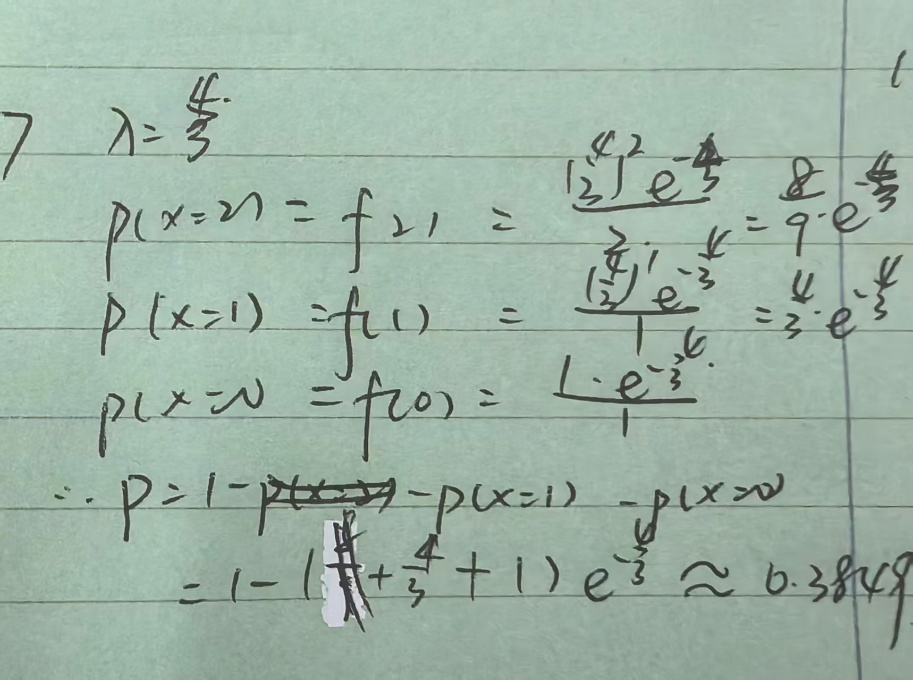 7 λ = 4/3
p(x=2) = f(2) = (4/3)² e^(-4/3) / 2 = 8/9 · e^(-4/3)
p(x=1) = f(1) = (4/3)¹ e^(-4/3) / 1 = 4/3 · e^(-4/3)
p(x=0) = f(0) = 1 · e^(-4/3) / 1
∴ p = 1 - - p(x=1) - p(x=0)
= 1 - ( + 4/3 + 1) e^(-4/3) ≈ 0.3849